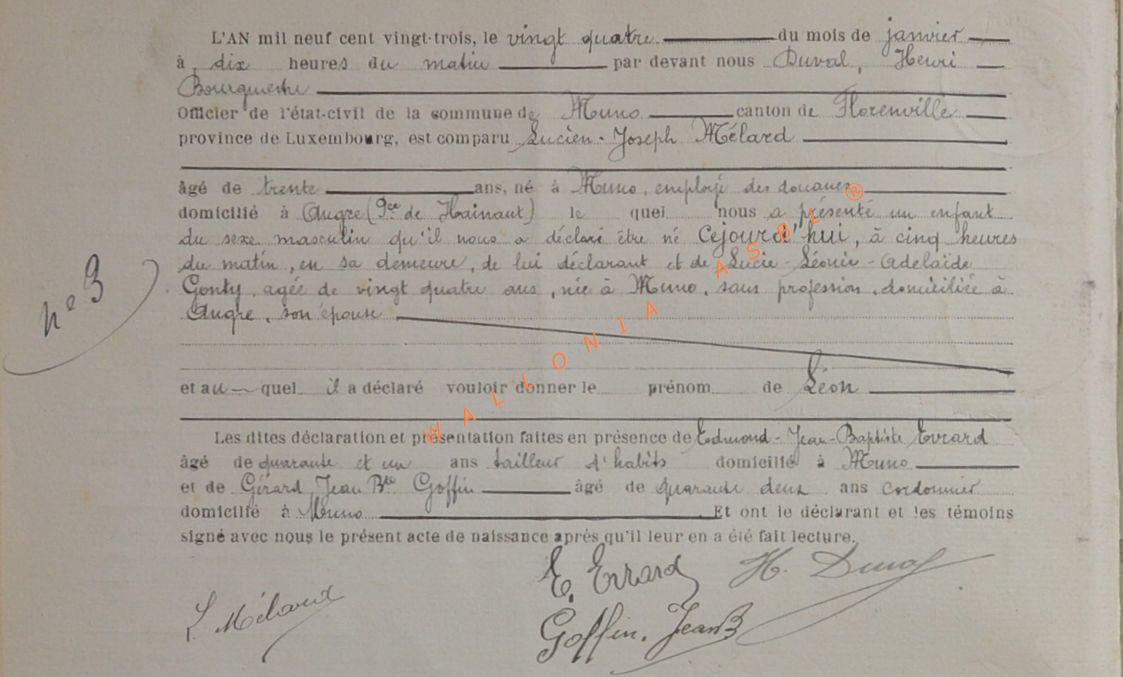 L'AN mil neuf cent vingt-trois, le vingt quatre du mois de janvier
à dix heures du matin par devant nous Duval, Henri
Bourgmestre
Officier de l'état-civil de la commune de Muno canton de Florenville
province de Luxembourg, est comparu Lucien-Joseph Mélard
âgé de trente ans, né à Muno, employé des douanes
domicilié à Angre (Pce de Hainaut) le quel nous a présenté un enfant
du sexe masculin qu'il nous a déclaré être né Cejourd'hui, à cinq heures
du matin, en sa demeure, de lui déclarant et de Lucie-Léonie-Adelaïde
Gonty, agée de vingt quatre ans, née à Muno, sans profession, domiciliée à
Angre, son épouse
n° 3
et au quel il a déclaré vouloir donner le prénom de Léon
Les dites déclaration et présentation faites en présence de Edmond-Jean-Baptiste Evrard
âgé de quarante et un ans tailleur d'habits domicilié à Muno
et de Gérard Jean Bte Goffin âgé de quarante deux ans cordonnier
domicilié à Muno Et ont le déclarant et les témoins
signé avec nous le présent acte de naissance après qu'il leur en a été fait lecture.
E. Evrard H. Duval
L. Mélard
Goffin. Jean B
WALLONIA ASBL ®